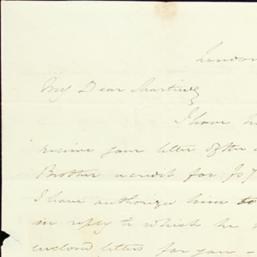 London
My Dear Martinez
I have
receive your letter of the
Brother a credit for
I have authorized him to
in reply to which he
enclosed letter for you —